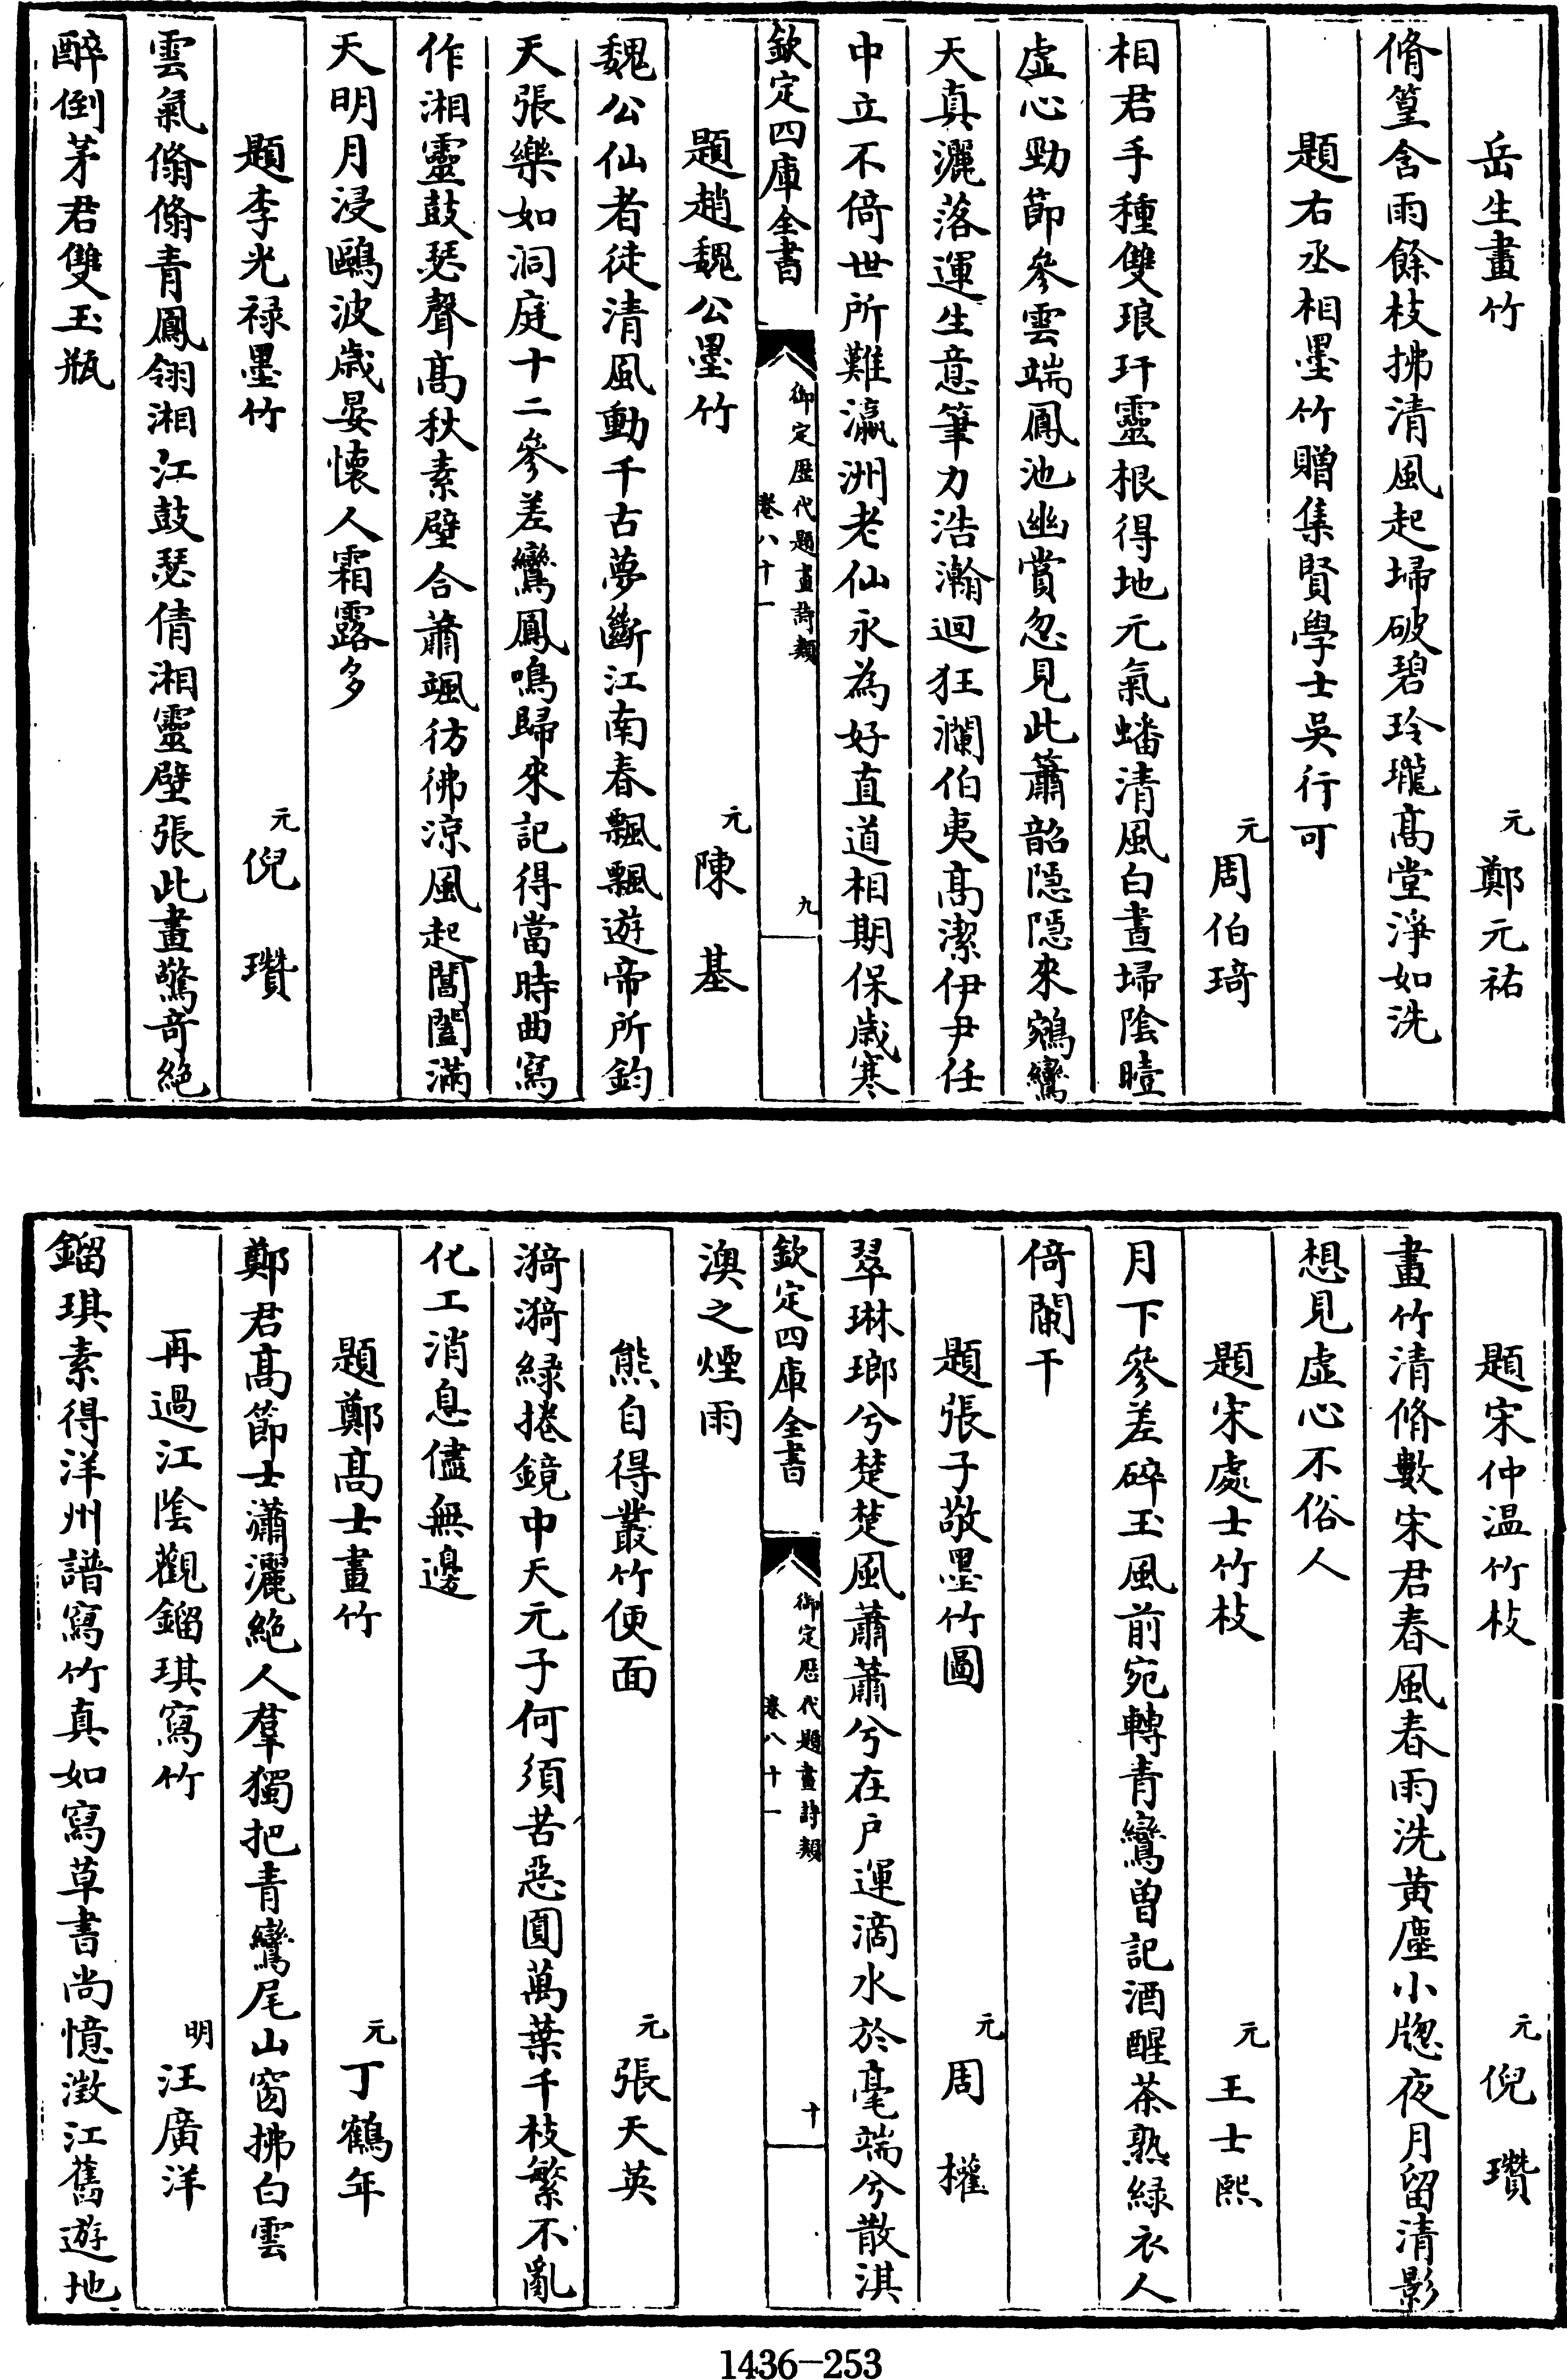 岳生畫竹　元　鄭元祐
脩篁含雨餘枝拂清風起埽破碧玲瓏髙堂淨如洗
題右丞相墨竹贈集賢學士吳行可
元　周伯琦
相君手種雙琅玕靈根得地元氣蟠清風白晝埽陰曀
虚心勁節參雲端鳳池幽賞忽見此簫韶隱隱來鵷鸞
天真灑落運生意筆力浩瀚迴狂瀾伯夷髙潔伊尹任
中立不倚世所難瀛洲老仙永為好直道相期保歲寒
欽定四庫全書　御定歷代題畫詩類　卷八十一　九
題趙魏公墨竹　元　陳基
魏公仙者徒清風動千古夢斷江南春飄飄遊帝所鈞
天張樂如洞庭十二參差鸞鳳鳴歸來記得當時曲寫
作湘靈鼓瑟聲髙秋素壁合蕭颯彷彿涼風起閶闔滿
天明月浸鷗波歲晏懷人霜露多
題李光禄墨竹　元　倪瓚
雲氣翛翛青鳳翎湘江鼓瑟倩湘靈壁張此畫驚奇絶
醉倒茅君雙玉瓶
題宋仲温竹枝　元　倪瓚
畫竹清脩數宋君春風春雨洗黄塵小牕夜月留清影
想見虚心不俗人
題宋處士竹枝　元　王士熙
月下參差碎玉風前宛轉青鸞曽記酒醒茶熟緑衣人
倚闌干
題張子敬墨竹圖　元　周權
翠琳瑯兮楚楚風蕭蕭兮在戶運滴水於毫端兮散淇
欽定四庫全書　御定歷代題畫詩類　卷八十一　十
澳之煙雨
熊自得叢竹便面　元　張天英
漪漪緑捲鏡中天元子何須苦惡圓萬葉千枝繁不亂
化工消息儘無邊
題鄭髙士畫竹　元　丁鶴年
鄭君髙節士瀟灑絶人羣獨把青鸞尾山窗拂白雲
再過江陰觀鎦琪寫竹　明　汪廣洋
鎦琪素得洋州譜寫竹真如寫草書尚憶澂江舊遊地
1436—253